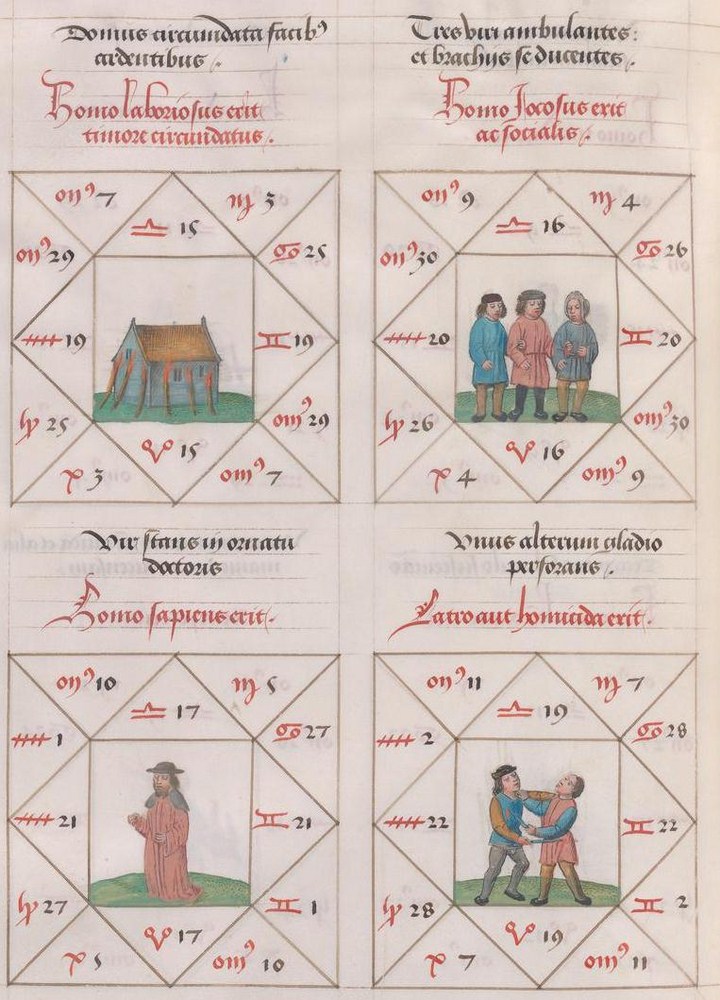 Domus circumdata facibꝰ
ardentibus ⁊.
Homo laboriosus erit
timore circumdatus ⁊.
onꝰ 7
♍ 3
♎ 15
onꝰ 29
♋ 25
♐ 19
♊ 19
25
omꝰ 29
♈ 15
3
omꝰ 7
Tres viri ambulantes:
et brachijs se ducentes ⁊.
Homo Jocosus erit
ac socialis ⁊.
onꝰ 9
♍ 4
♎ 16
onꝰ 30
♋ 26
♐ 20
♊ 20
26
omꝰ 30
♈ 16
4
omꝰ 9
Vir stans in ornatu
doctoris
Homo sapiens erit ⁊.
onꝰ 10
♍ 5
♎ 17
♐ 1
♋ 27
♐ 21
♊ 21
27
♊ 1
♈ 17
5
omꝰ 10
Vnus alterum gladio
perforans ⁊.
Latro aut homicida erit ⁊.
onꝰ 11
♍ 7
♎ 19
♐ 2
♋ 28
♐ 22
♊ 22
28
♊ 2
♈ 19
7
omꝰ 11